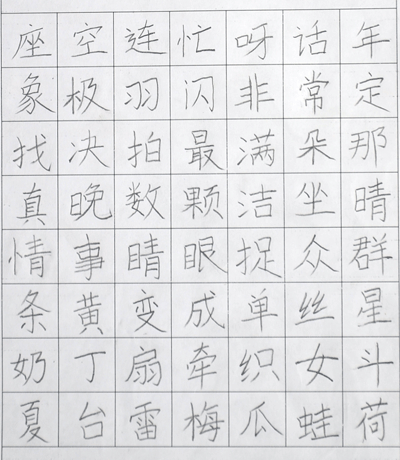 座空连忙呀话年
象极羽闪非常定
找决拍最满朵那
真晚数颗洁坐晴
情事睛眼捉众群
条黄变成单丝星
奶丁扇牵织女斗
夏台雷梅瓜蛙荷